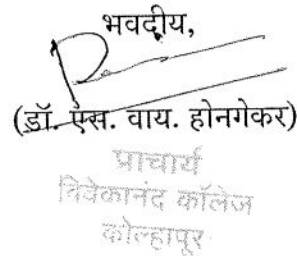 भवदीय,
(डॉ. एस. वाय. होनगेकर)
प्राचार्य
विवेकानंद कॉलेज
कोल्हापूर